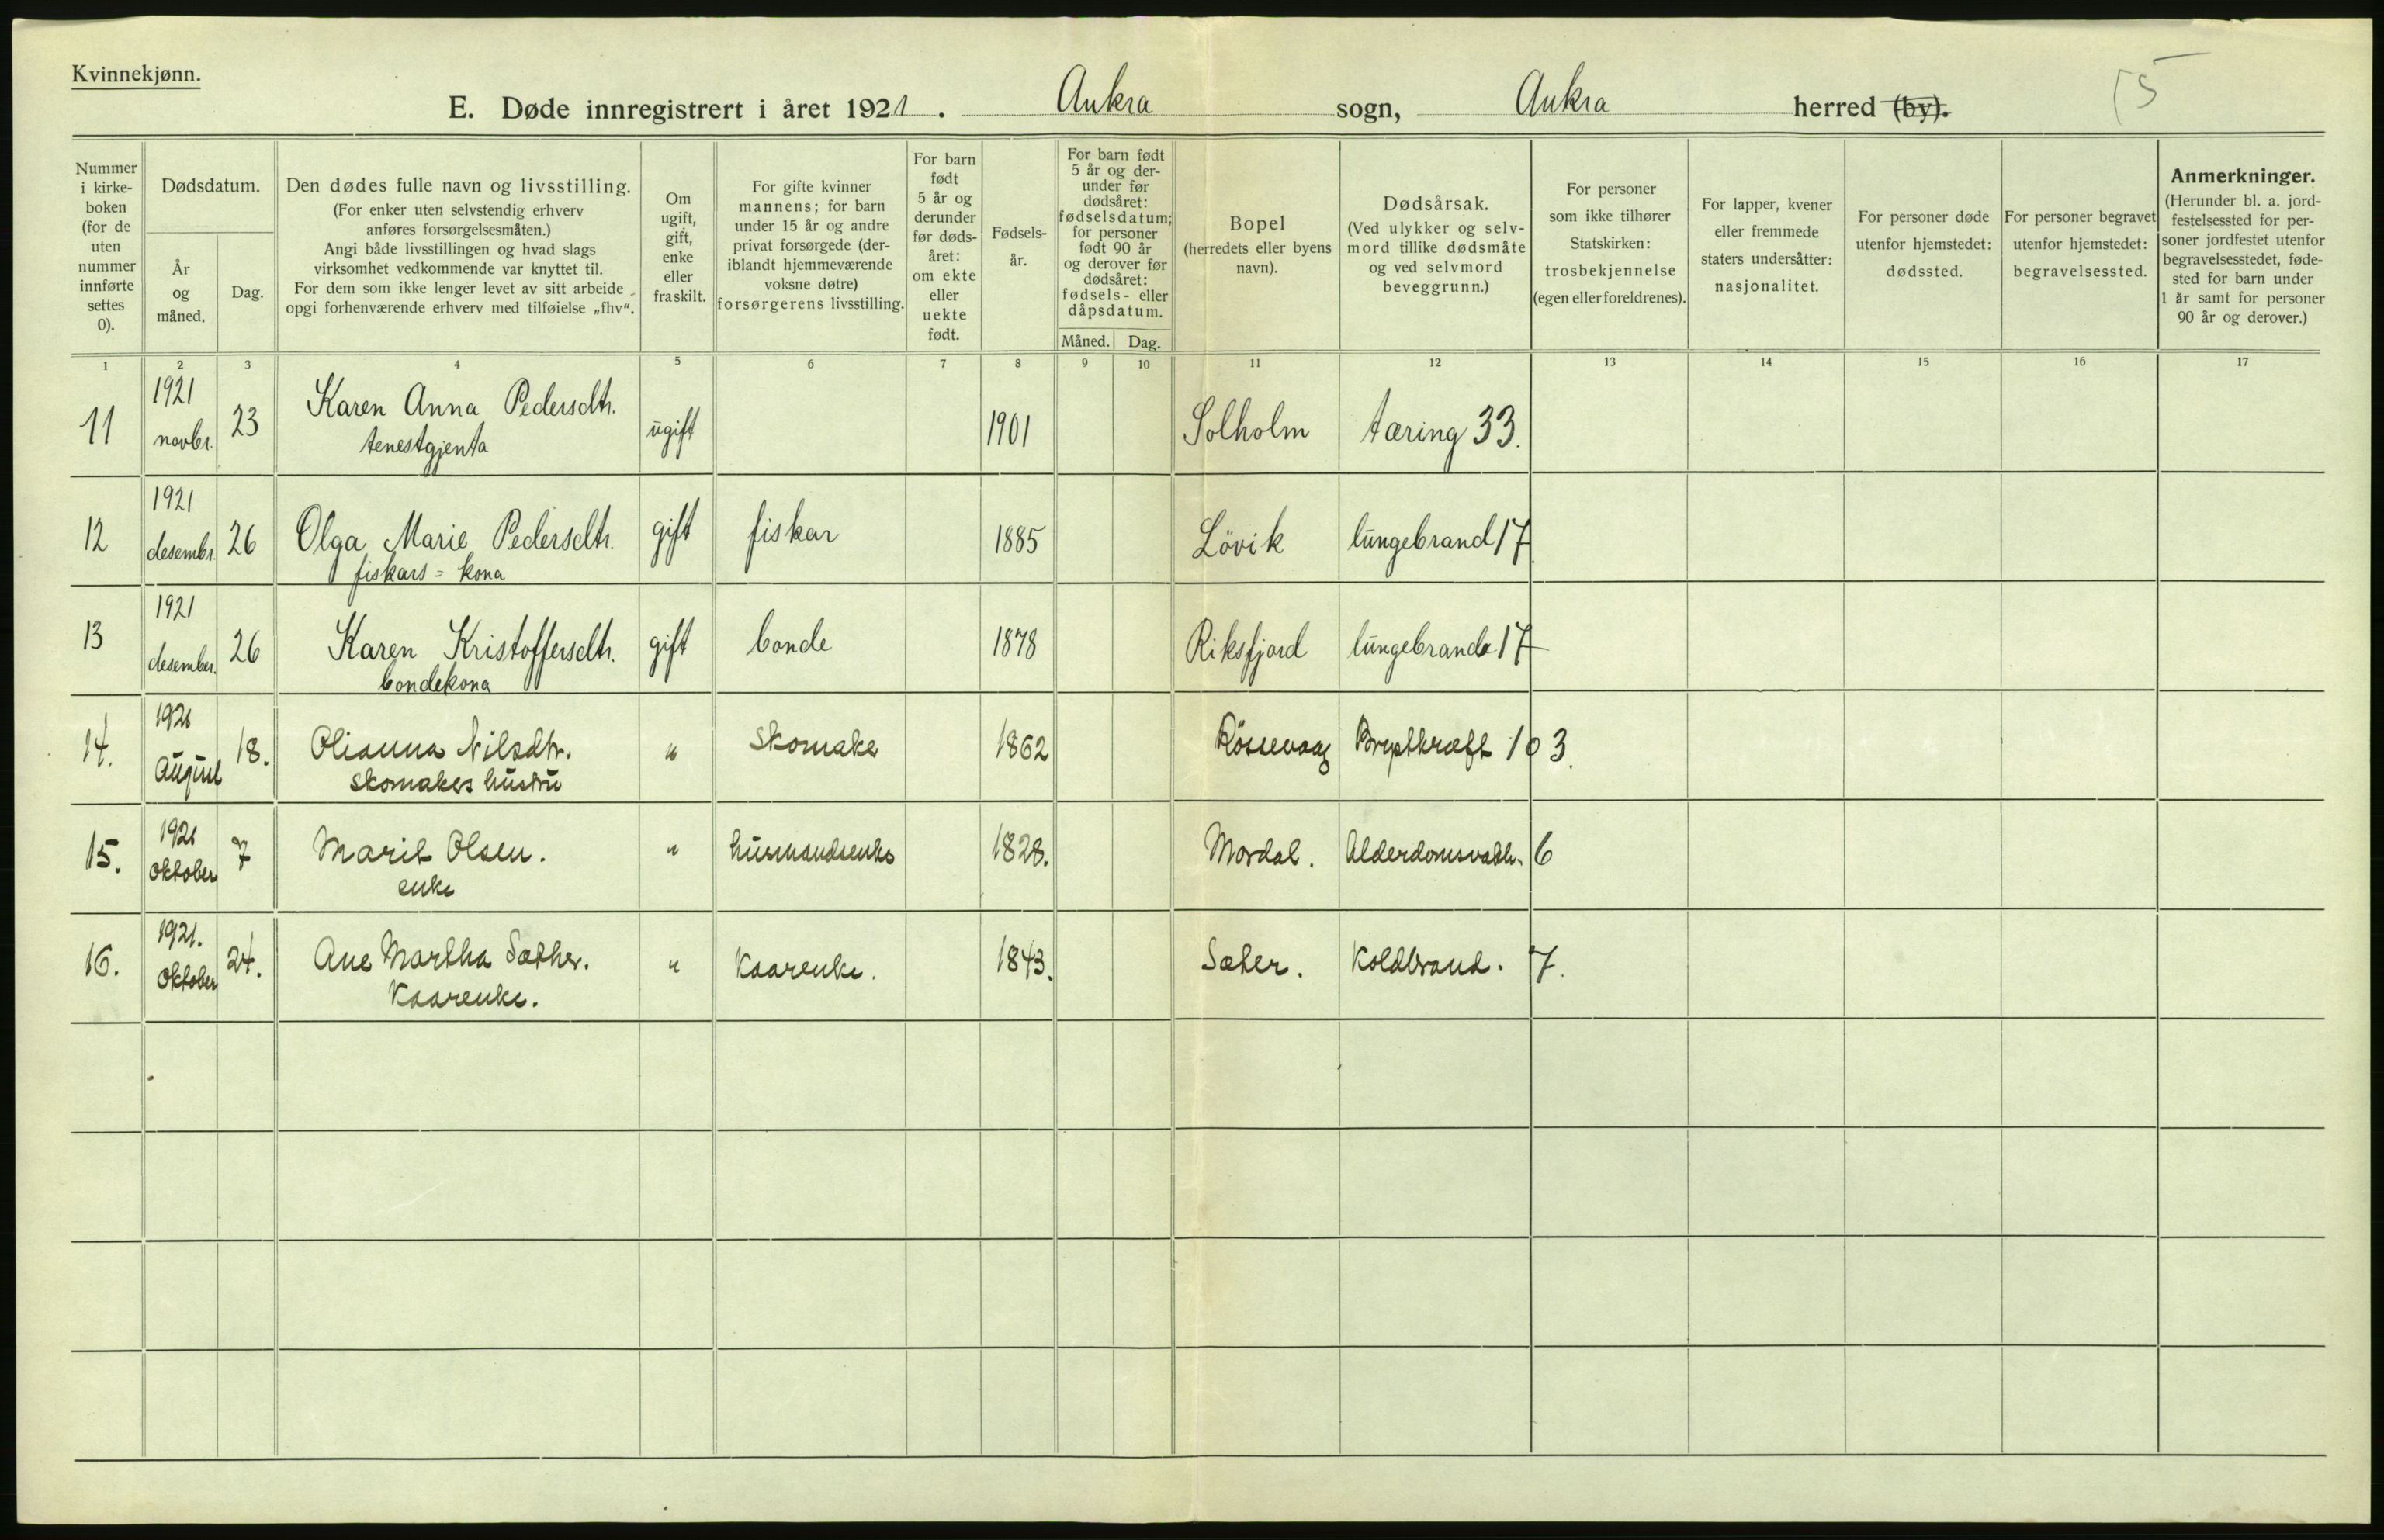 Kvinnekjønn.
E. Døde innregistrert i året 1921. Aukra sogn, Aukra herred (by).
15
Nummer i kirkeboken (for de uten nummer innførte settes 0).
Dødsdatum.
År og måned.
Dag.
Den dødes fulle navn og livsstilling.
(For enker uten selvstendig erhverv
anføres forsørgelsesmåten.)
Angi både livsstillingen og hvad slags
virksomhet vedkommende var knyttet til.
For dem som ikke lenger levet av sitt arbeide
opgi forhenværende erhverv med tilføielse „fhv“.
Om
ugift,
gift,
enke
eller
fraskilt.
For gifte kvinner
mannens; for barn
under 15 år og andre
privat forsørgede (der-
iblandt hjemmeværende
voksne døtre)
forsørgerens livsstilling.
For barn
født
5 år og
derunder
før døds-
året:
om ekte
eller
uekte
født.
Fødsels-
år.
For barn født
5 år og der-
under før
dødsåret:
fødselsdatum;
for personer
født 90 år
og derover før
dødsåret:
fødsels- eller
dåpsdatum.
Måned. Dag.
Bopel
(herredets eller byens
navn).
Dødsårsak.
(Ved ulykker og selv-
mord tillike dødsmåte
og ved selvmord
beveggrunn.)
For personer
som ikke tilhører
Statskirken:
trosbekjennelse
(egen eller foreldrenes).
For lapper, kvener
eller fremmede
staters undersåtter:
nasjonalitet.
For personer døde
utenfor hjemstedet:
dødssted.
For personer begravet
utenfor hjemstedet:
begravelsessted.
Anmerkninger.
(Herunder bl. a. jord-
festelsessted for per-
soner jordfestet utenfor
begravelsesstedet, føde-
sted for barn under
1 år samt for personer
90 år og derover.)
1 2 3 4 5 6 7 8 9 10 11 12 13 14 15 16 17
11 1921 novbr. 23 Karen Anna Pedersdtr. ugift 1901 Solholm tæring 33.
tenestgjenta
12 1921 desembr. 26 Olga Marie Pedersdtr. gift fiskar 1885 Lövik lungebrand 17
fiskars = kona
13 1921 desember. 26 Karen Kristoffersdtr. gift bonde 1878 Riksfjord lungebrand 17
bondekona
14. 1921 August 18. Olianna Nilsdtr. " Skomaker 1862 Røssevaag Brystkræft 103.
skomakers hustru
15. 1921 Oktober 7 Marit Olsen. " husmandsenke 1828. Mordal. Alderdomsvakh. 6
enke
16. 1921. Oktober 24. Ane Martha Sæther. " Kaarenke. 1843. Sæter. Koldbrand. 7.
Kaarenke.